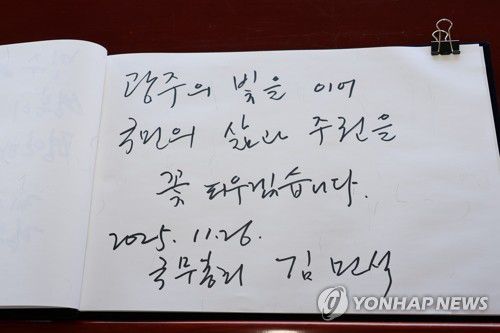 광주의 빛을 이어
국민의 삶과 주권을
꽃 피우겠습니다.
2025. 11. 26.
국무총리 김민석
YONHAP NEWS